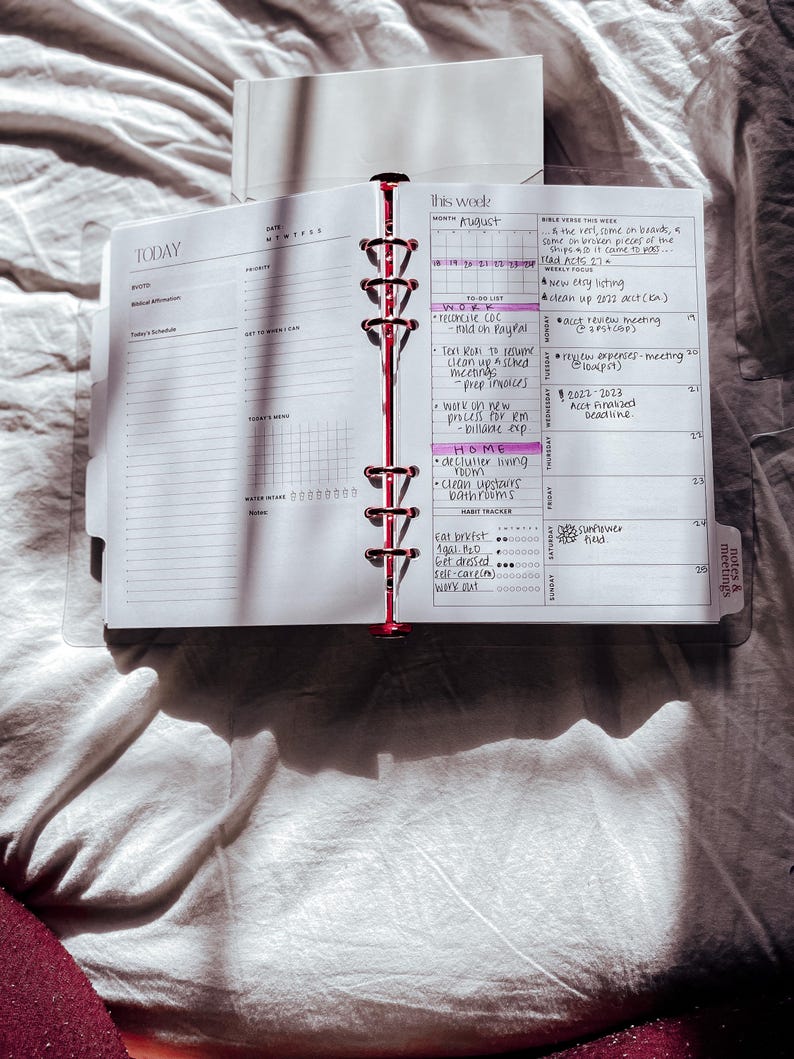 TODAY
DATE:
M T W T F S S
BVOTD:
Biblical Affirmation:
Today's Schedule
PRIORITY
GET TO WHEN I CAN
TODAY'S MENU
WATER INTAKE
Notes:
this week
MONTH August
18 19 20 21 22 23 24
TO-DO LIST
WORK
• reconcile COC
- Hold on PayPal
• Text Roxi to resume
clean up & sched
meetings
- prep invoices
• work on new
process for RM
- billable exp.
HOME
• declutter living
room
• clean upstairs
bathrooms
HABIT TRACKER
S M T W T F S
Eat brkfst
1gal. H2O
Get dressed
Self-care
Work out
BIBLE VERSE THIS WEEK
... & the rest, some on boards, &
some on broken pieces of the
ship. & so it came to pass...
read Acts 27 *
WEEKLY FOCUS
New etsy listing
clean up 2022 acct (Ka.)
MONDAY
19
• acct review meeting
TUESDAY
20
• review expenses - meeting
@ 10a(pst)
WEDNESDAY
21
! 2022-2023
Acct Finalized
Deadline.
THURSDAY
22
FRIDAY
23
SATURDAY
24
sunflower
field.
SUNDAY
25
notes &
meetings